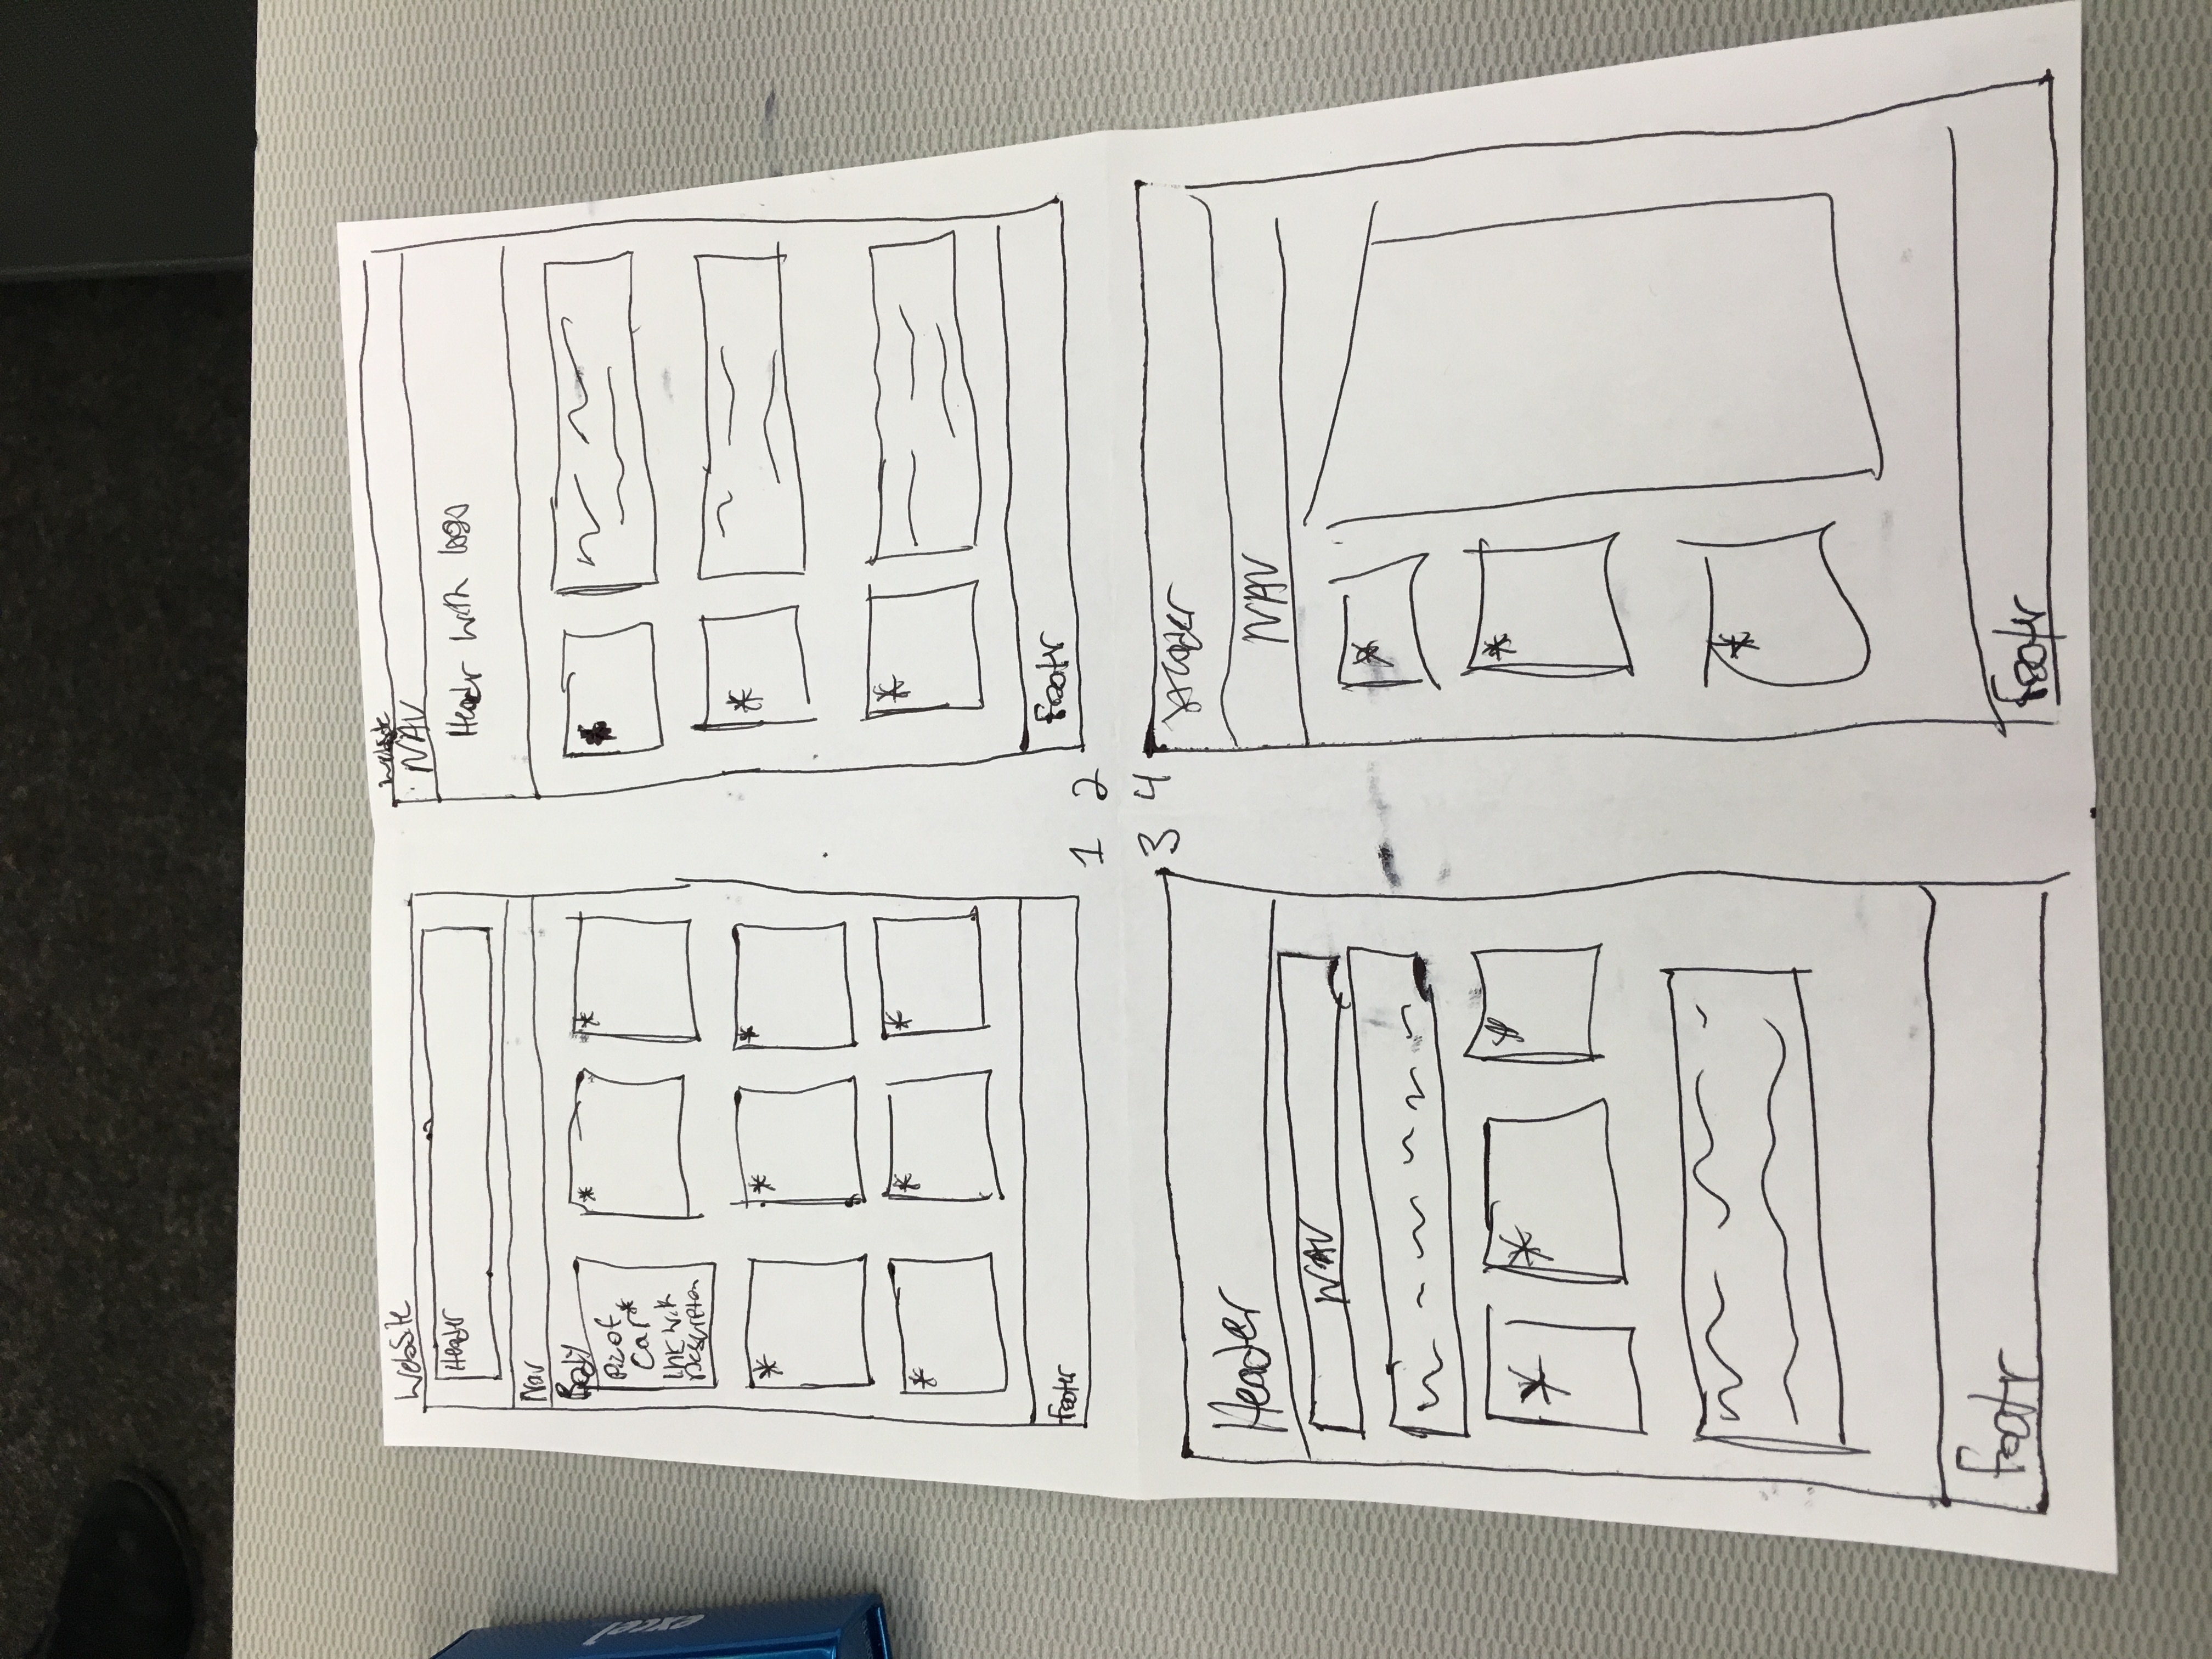 WebSite
Header
Nav
Body
Pic of
Car *
link with
Description
*
*
*
*
*
*
*
*
Footer
1
NAV
Header with logo
*
*
*
Footer
2
Header
NAV
*
*
*
Footer
3
NAV
*
*
*
Footer
4
excel